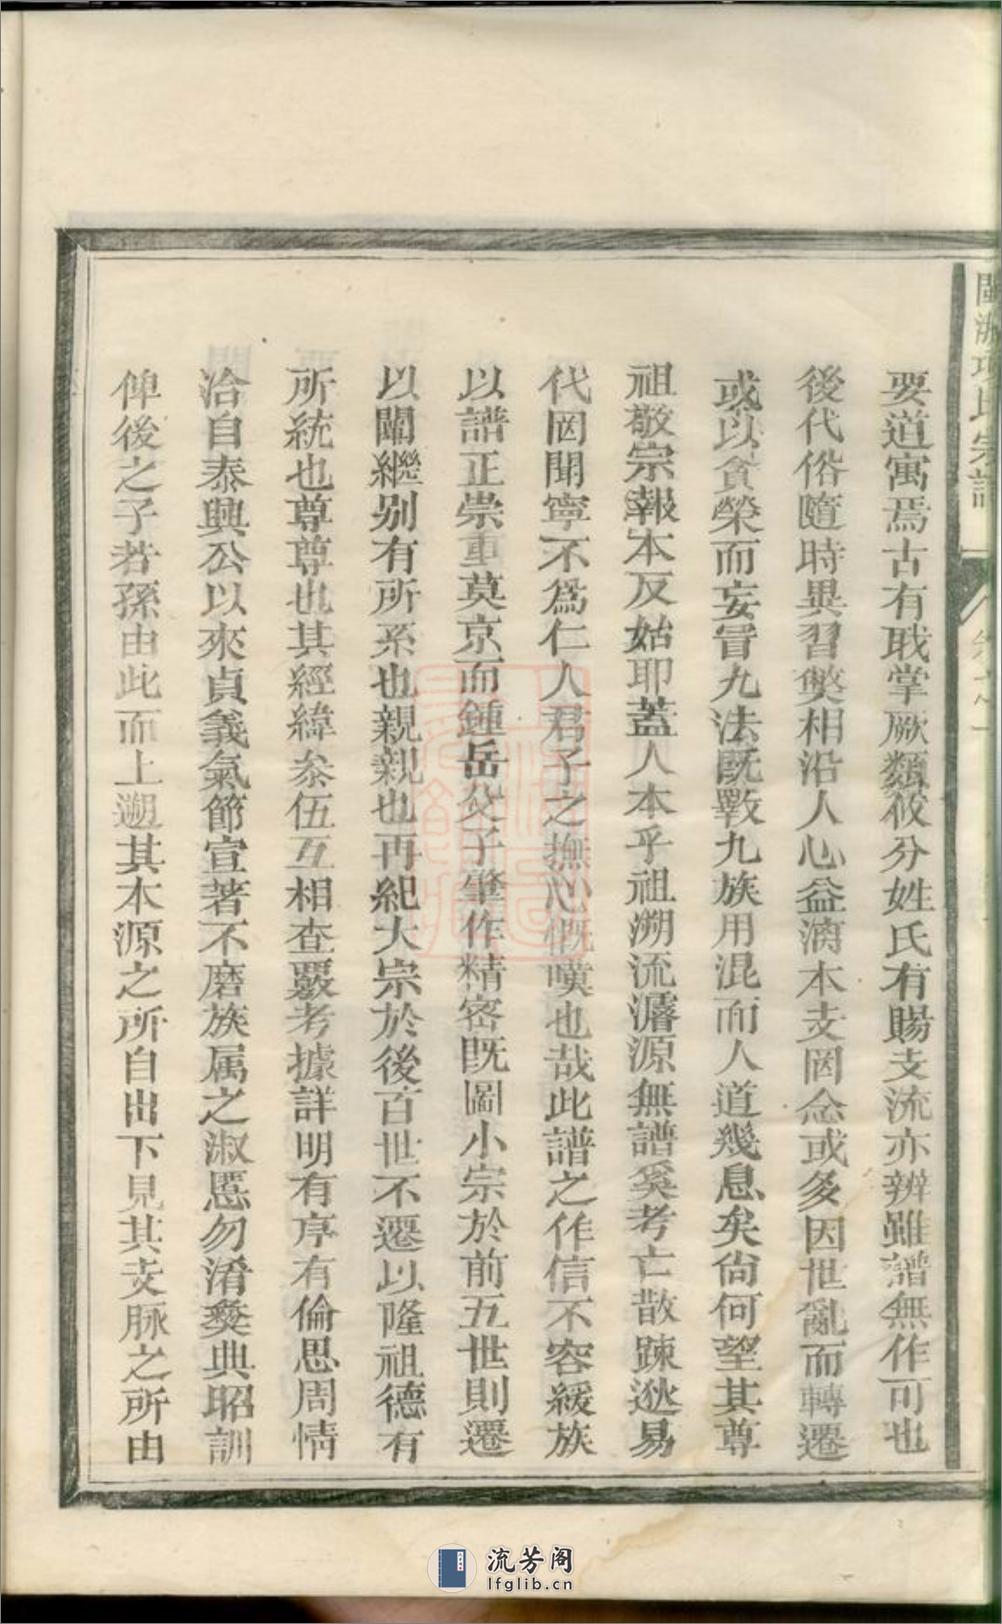 要道寓焉古有職掌厥類攸分姓氏有賜支流亦辨雖譜無作可也
後代俗隨時異習獘相沿人心益漓本支罔念或多因世亂而轉遷
或以貪榮而妄冒九法既斁九族用混而人道幾息矣尙何望其尊
祖敬宗報本反始耶蓋人本乎祖溯流濬源無譜奚考亡散踈逖易
代罔聞寧不爲仁人君子之撫心慨嘆也哉此譜之作信不容緩族
以譜正崇重莫京而鍾岳父子肇作精密既圖小宗於前五世則遷
以闡繼别有所系也親親也再紀大宗於後百世不遷以隆祖德有
所統也尊尊也其經緯叅伍互相查覈考據詳明有序有倫思周情
洽自泰興公以來貞義氣節宣著不磨族属之淑慝勿淆彜典昭訓
俾後之子若孫由此而上遡其本源之所自出下見其支脉之所由
氏宗譜
流芳阁
lfglib.cn